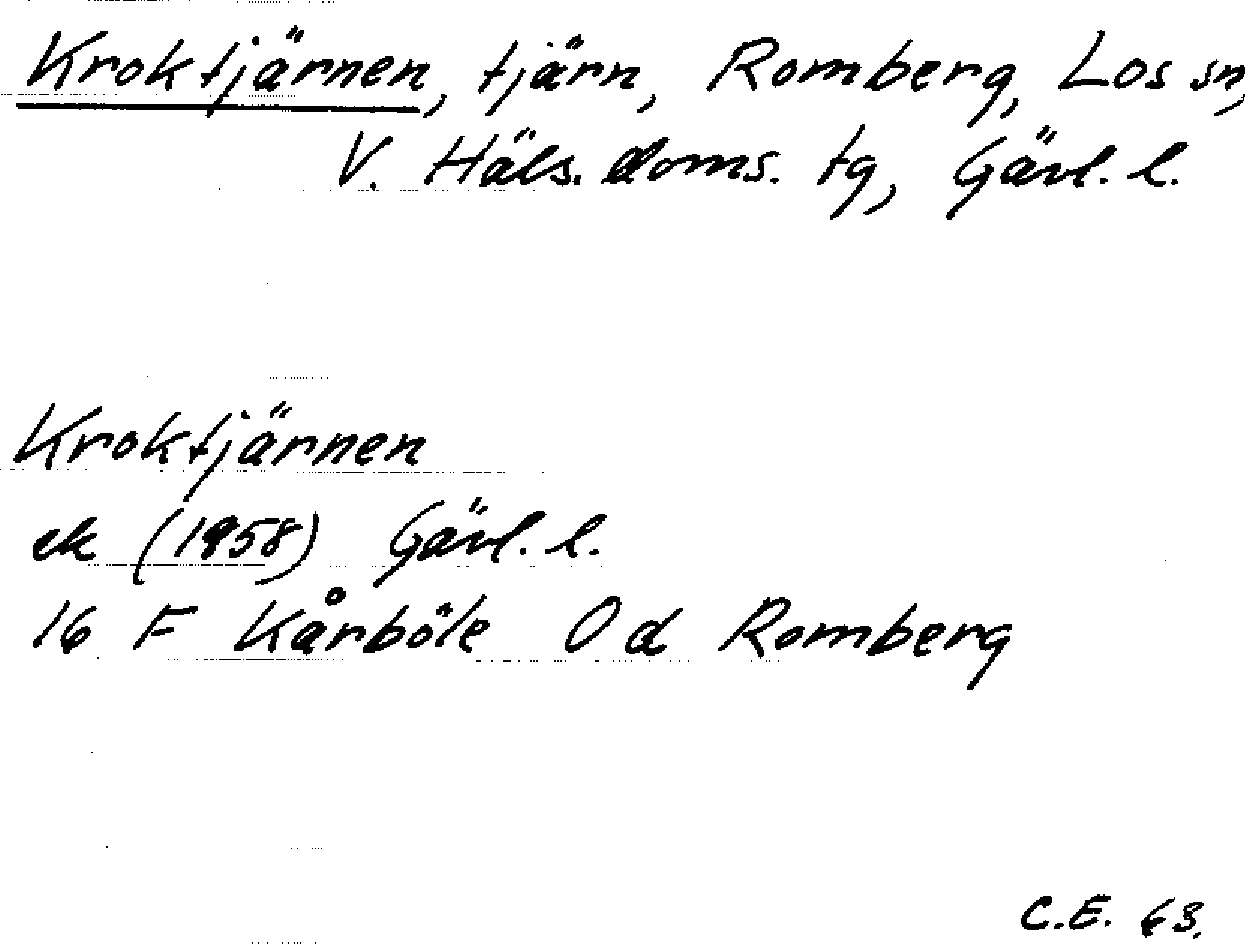 Kroktjärnen, tjärn, Romberg, Los sn,
V. Häls. doms. tg, Gävl. l.
Kroktjärnen
ek (1958) Gävl. l.
16 F Kårböle 0 d Romberg
C.E. 63.